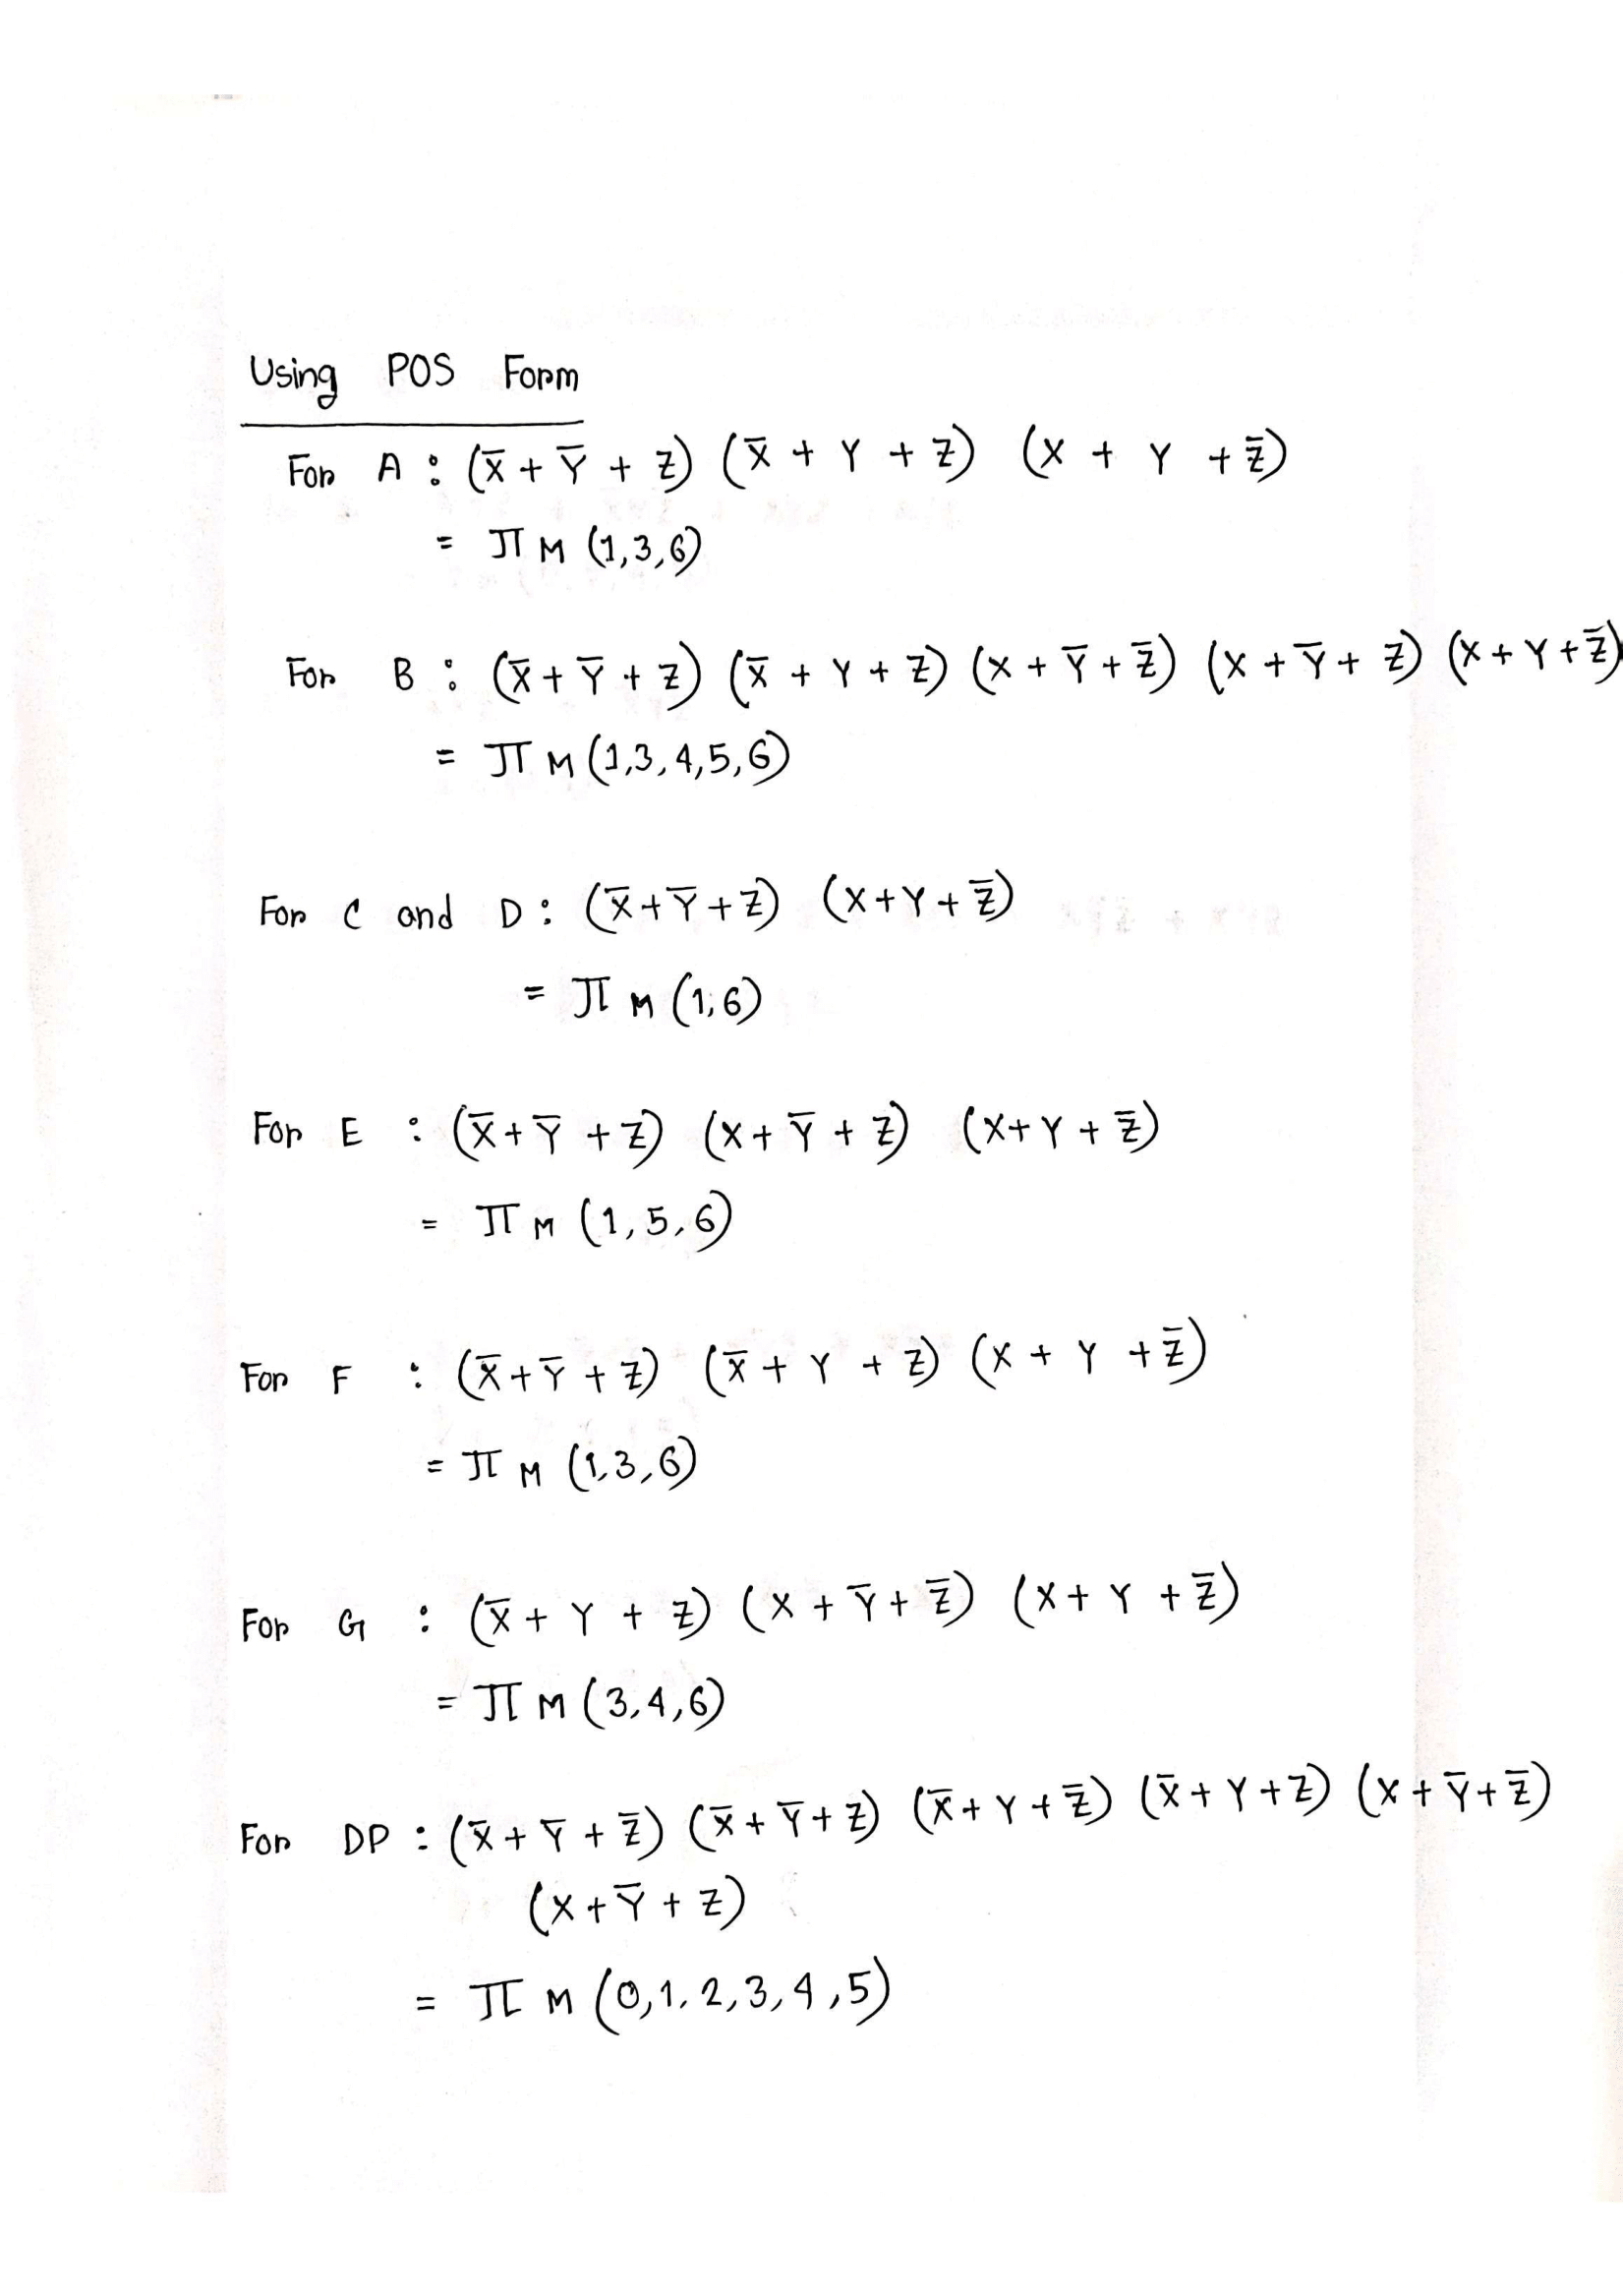 Using POS Form
For A : (X̅ + Y̅ + Z) (X̅ + Y + Z) (X + Y + Z̅)
= π M (1,3,6)
For B : (X̅ + Y̅ + Z) (X̅ + Y + Z) (X + Y̅ + Z̅) (X + Y̅ + Z) (X + Y + Z̅)
= π M (1,3,4,5,6)
For C and D : (X̅ + Y̅ + Z) (X + Y + Z̅)
= π M (1,6)
For E : (X̅ + Y̅ + Z) (X + Y̅ + Z) (X + Y + Z̅)
= π M (1,5,6)
For F : (X̅ + Y̅ + Z) (X̅ + Y + Z) (X + Y + Z̅)
= π M (1,3,6)
For G : (X̅ + Y + Z) (X + Y̅ + Z̅) (X + Y + Z̅)
= π M (3,4,6)
For DP : (X̅ + Y̅ + Z̅) (X̅ + Y̅ + Z) (X̅ + Y + Z̅) (X̅ + Y + Z) (X + Y̅ + Z̅)
(X + Y̅ + Z)
= π M (0,1,2,3,4,5)